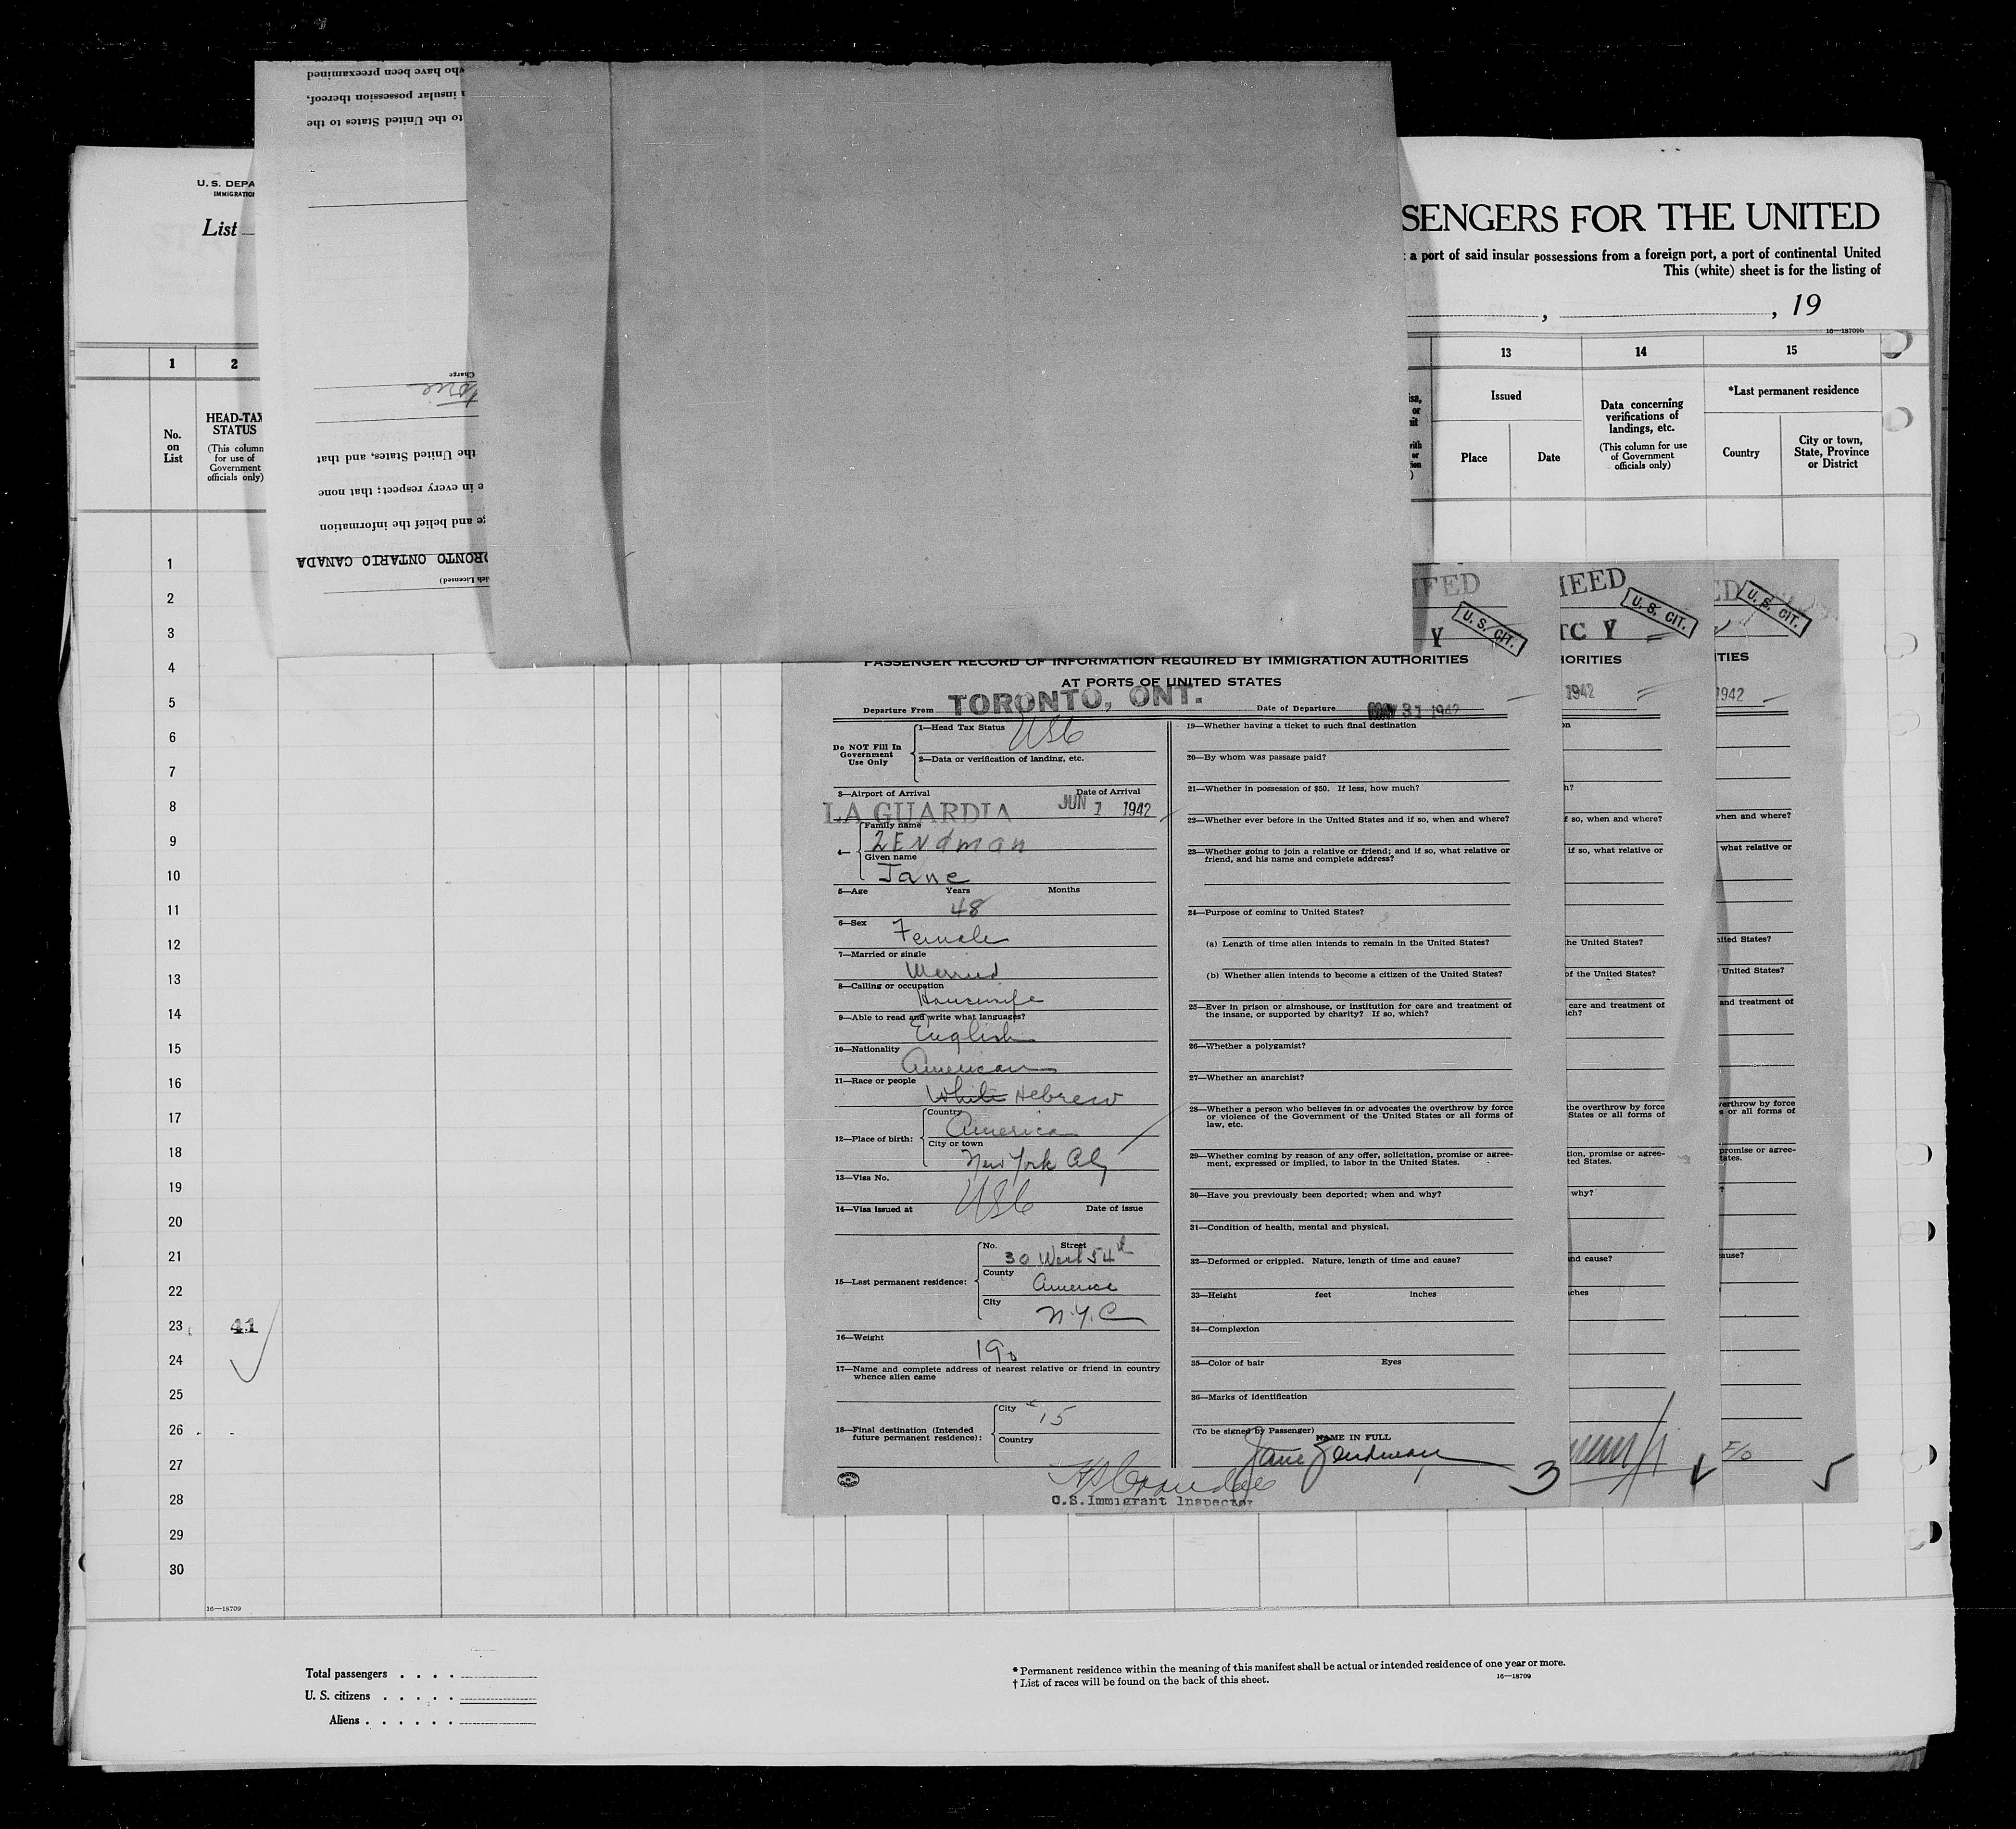 U. S. DEPA
IMMIGRATION
List
who have been preexamined
insular possession thereof,
to the United States to the
Charge
the United States, and that
e in every respect; that none
ge and belief the information
ORONTO ONTARIO CANADA
ich Licensed)
SENGERS FOR THE UNITED
a port of said insular possessions from a foreign port, a port of continental United
This (white) sheet is for the listing of
, , 19
16—18709b
1 2 13 14 15
No. on List
HEAD-TAX STATUS
(This column for use of Government officials only)
Issued
Place Date
Data concerning verifications of landings, etc.
(This column for use of Government officials only)
*Last permanent residence
Country
City or town, State, Province or District
1
2
3
4
5
6
7
8
9
10
11
12
13
14
15
16
17
18
19
20
21
22
23 41
24
25
26
27
28
29
30
16—18709
Y U. S. CIT.
PASSENGER RECORD OF INFORMATION REQUIRED BY IMMIGRATION AUTHORITIES
AT PORTS OF UNITED STATES
Departure From TORONTO, ONT. Date of Departure MAY 31 1942
Do NOT Fill In Government Use Only
1—Head Tax Status USC
2—Data or verification of landing, etc.
3—Airport of Arrival Date of Arrival
LA GUARDIA JUN 1 1942
4— Family name
Zendman
Given name
Jane
5—Age Years Months
48
6—Sex
Female
7—Married or single
Married
8—Calling or occupation
Housewife
9—Able to read and write what languages?
English
10—Nationality
American
11—Race or people
White Hebrew
12—Place of birth: Country
America
City or town
New York City
13—Visa No.
USC
14—Visa issued at Date of issue
15—Last permanent residence: No. Street
30 West 54th
County
America
City
N.Y.C
16—Weight
190
17—Name and complete address of nearest relative or friend in country
whence alien came
18—Final destination (Intended
future permanent residence): City
15
Country
U.S.Immigrant Inspector
19—Whether having a ticket to such final destination
20—By whom was passage paid?
21—Whether in possession of $50. If less, how much?
22—Whether ever before in the United States and if so, when and where?
23—Whether going to join a relative or friend; and if so, what relative or
friend, and his name and complete address?
24—Purpose of coming to United States?
(a) Length of time alien intends to remain in the United States?
(b) Whether alien intends to become a citizen of the United States?
25—Ever in prison or almshouse, or institution for care and treatment of
the insane, or supported by charity? If so, which?
26—Whether a polygamist?
27—Whether an anarchist?
28—Whether a person who believes in or advocates the overthrow by force
or violence of the Government of the United States or all forms of
law, etc.
29—Whether coming by reason of any offer, solicitation, promise or agree-
ment, expressed or implied, to labor in the United States.
30—Have you previously been deported; when and why?
31—Condition of health, mental and physical.
32—Deformed or crippled. Nature, length of time and cause?
33—Height feet inches
34—Complexion
35—Color of hair Eyes
36—Marks of identification
(To be signed by Passenger) NAME IN FULL
Jane Zendman
3
U. S. CIT.
TC Y
HORITIES
1942
on
h?
f so, when and where?
if so, what relative or
he United States?
of the United States?
care and treatment of
ich?
the overthrow by force
States or all forms of
tion, promise or agree-
ted States.
why?
nd cause?
ches
U. S. CIT.
ITIES
1942
when and where?
what relative or
nited States?
United States?
and treatment of
verthrow by force
s or all forms of
promise or agree-
tates.
?
ause?
5
Total passengers . . . .
U. S. citizens . . . . .
Aliens . . . . . .
* Permanent residence within the meaning of this manifest shall be actual or intended residence of one year or more.
† List of races will be found on the back of this sheet.
16—18709